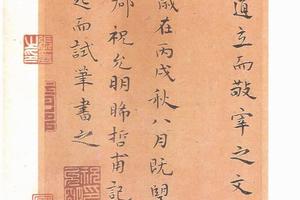 道立而敬宰之文
歲在丙戌秋八月既望
郡祝允明晞哲甫記
起而試筆書之